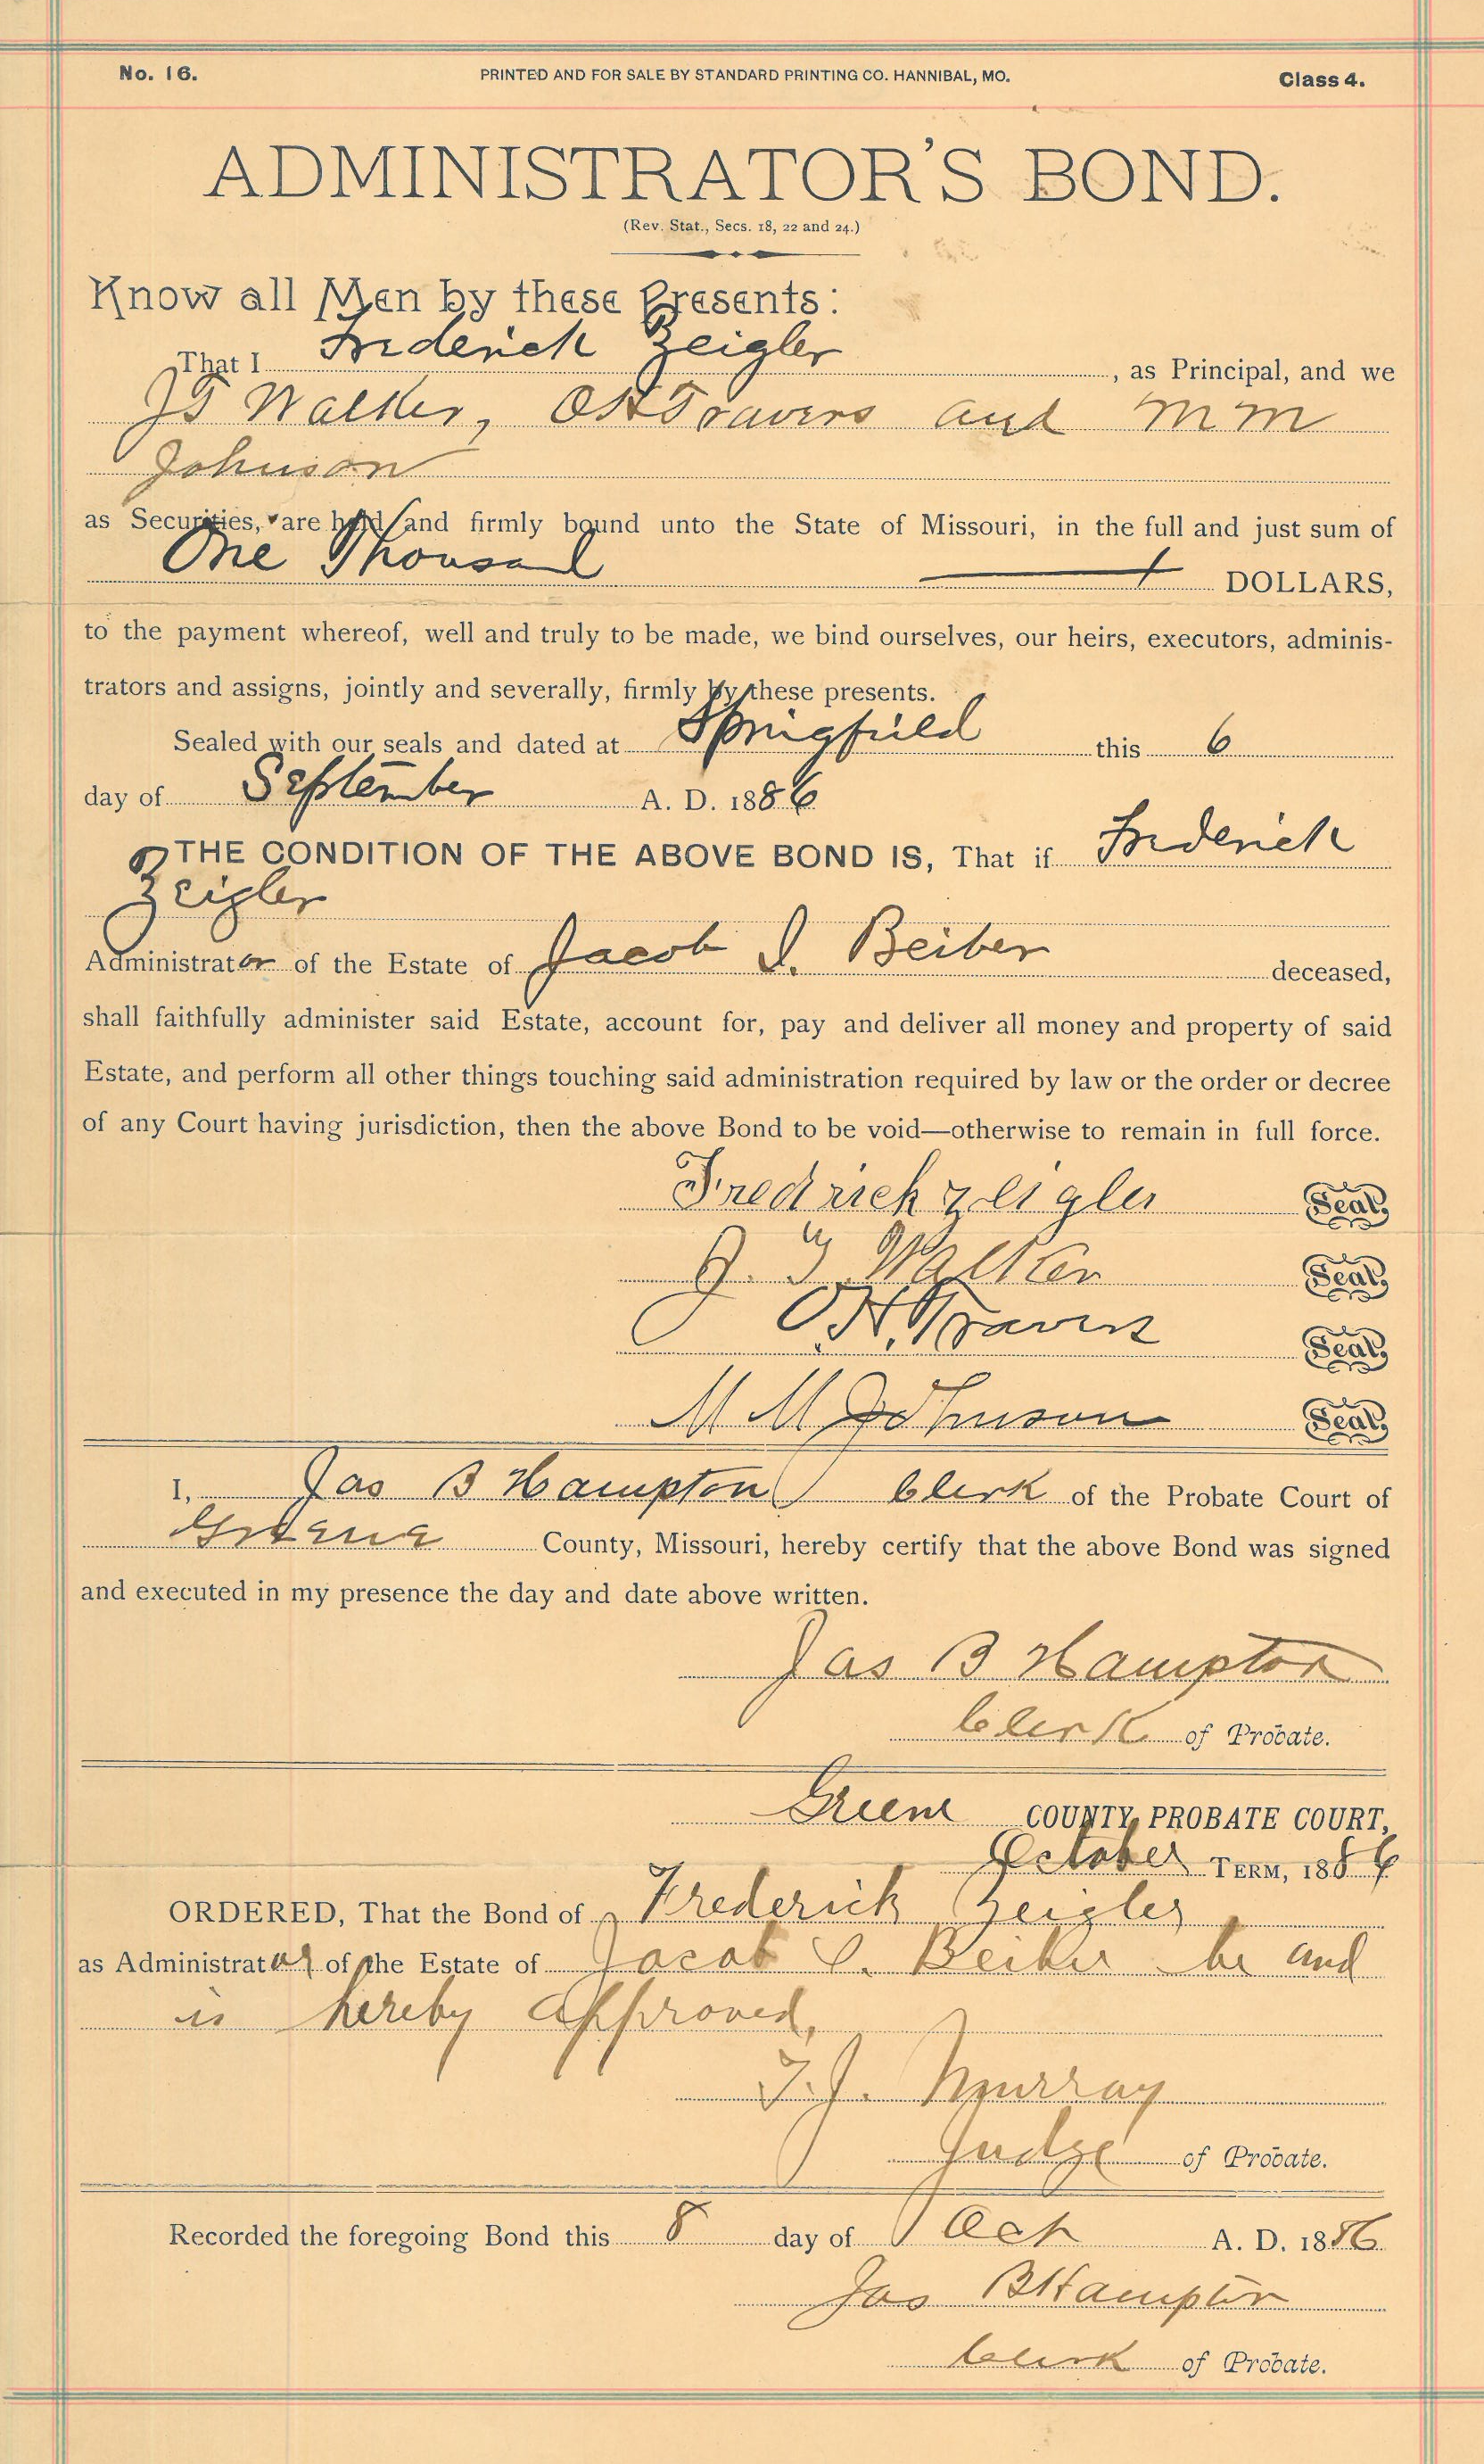 No. 16. PRINTED AND FOR SALE BY STANDARD PRINTING CO. HANNIBAL, MO. Class 4.
ADMINISTRATOR'S BOND.
(Rev. Stat., Secs. 18, 22 and 24.)
Know all Men by these Presents:
That I Frederick Zeigler, as Principal, and we
JT Walker, OH Travers and MM
Johnson
as Securities, are held and firmly bound unto the State of Missouri, in the full and just sum of
One Thousand DOLLARS,
to the payment whereof, well and truly to be made, we bind ourselves, our heirs, executors, adminis-
trators and assigns, jointly and severally, firmly by these presents.
Sealed with our seals and dated at Springfield this 6
day of September A. D. 1886
THE CONDITION OF THE ABOVE BOND IS, That if Frederick
Zeigler
Administrator of the Estate of Jacob I. Beiber deceased,
shall faithfully administer said Estate, account for, pay and deliver all money and property of said
Estate, and perform all other things touching said administration required by law or the order or decree
of any Court having jurisdiction, then the above Bond to be void—otherwise to remain in full force.
Fredrick Zeigler Seal
J. T. Walker Seal
O.H. Travers Seal
M M Johnson Seal
I, Jas B Hampton Clerk of the Probate Court of
Greene County, Missouri, hereby certify that the above Bond was signed
and executed in my presence the day and date above written.
Jas B Hampton
Clerk of Probate.
Greene COUNTY PROBATE COURT,
October TERM, 1886
ORDERED, That the Bond of Frederick Zeigler
as Administrator of the Estate of Jacob I. Beiber be and
is hereby approved.
T.J. Murray
Judge of Probate.
Recorded the foregoing Bond this 8 day of Oct A. D. 1886
Jas B Hampton
Clerk of Probate.